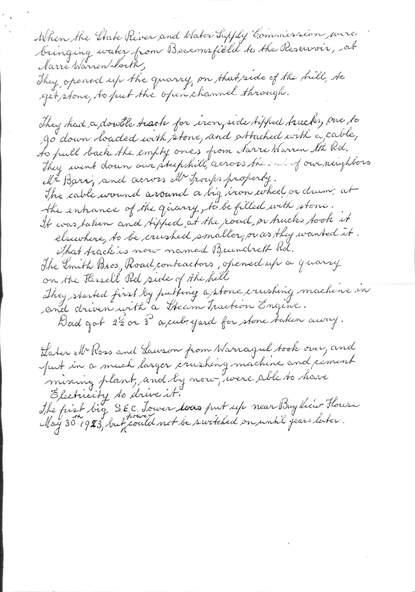 When the State River and Water Supply Commission were
bringing water from Beaconsfield to the Reservoir, at
Narre Warren North,
They opened up the quarry, on that side of the hill, to
get stone, to put the open channel through.
They had a double track for iron, side tipped trucks, one to
go down loaded with stone, and attached with a cable,
to pull back the empty ones from Narre Warren Nth Rd.
They went down our steep hill, across the of our neighbors
Mr Barr, and across Mr Troups property.
The cable wound around a big iron wheel or drum, at
the entrance of the quarry, to be filled with stone.
It was taken and tipped, at the road, or trucks took it
elsewhere, to be crushed smaller, or as they wanted it.
That track is now named Brundrett Rd.
The Smith Bros, Road contractors, opened up a quarry
on the Hessell Rd side of the hill
They started first by putting a stone crushing machine in
and driven with a Steam Traction Engine.
Dad got 2½ or 3ᴰ a cub yard for stone taken away.
Later Mr Ross and Lawson from Warragul took over, and
put in a much larger crushing machine and cement
mixing plant, and by now, were able to have
Electricity to drive it.
The first big S.E.C. Tower was put up near Bay View House
May 30th 1923, but power could not be switched on, until years later.